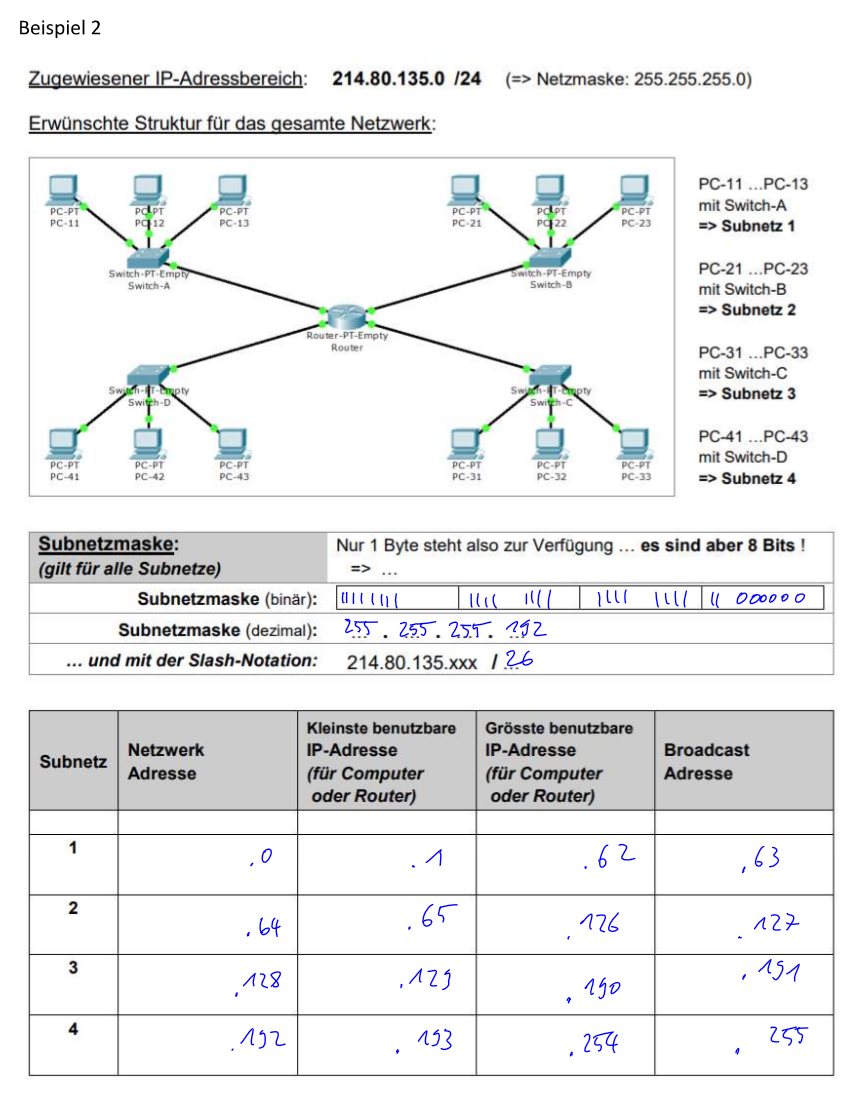 Beispiel 2
Zugewiesener IP-Adressbereich: 214.80.135.0 /24 (=> Netzmaske: 255.255.255.0)
Erwünschte Struktur für das gesamte Netzwerk:
PC-PT PC-PT PC-PT PC-PT PC-PT PC-PT
PC-11 PC-12 PC-13 PC-21 PC-22 PC-23
Switch-PT-Empty Switch-PT-Empty
Switch-A Switch-B
Router-PT-Empty
Router
Switch-PT-Empty Switch-PT-Empty
Switch-D Switch-C
PC-PT PC-PT PC-PT PC-PT PC-PT PC-PT
PC-41 PC-42 PC-43 PC-31 PC-32 PC-33
PC-11 ...PC-13
mit Switch-A
=> Subnetz 1
PC-21 ...PC-23
mit Switch-B
=> Subnetz 2
PC-31 ...PC-33
mit Switch-C
=> Subnetz 3
PC-41 ...PC-43
mit Switch-D
=> Subnetz 4
Subnetzmaske: Nur 1 Byte steht also zur Verfügung ... es sind aber 8 Bits !
(gilt für alle Subnetze) => ...
Subnetzmaske (binär): 11111111 1111 1111 1111 1111 11 000000
Subnetzmaske (dezimal): 255 . 255 . 255 . 192
... und mit der Slash-Notation: 214.80.135.xxx / 26
Subnetz
Netzwerk
Adresse
Kleinste benutzbare
IP-Adresse
(für Computer
oder Router)
Grösste benutzbare
IP-Adresse
(für Computer
oder Router)
Broadcast
Adresse
1 .0 .1 .62 .63
2 .64 .65 .126 .127
3 .128 .129 .190 .191
4 .192 .193 .254 .255